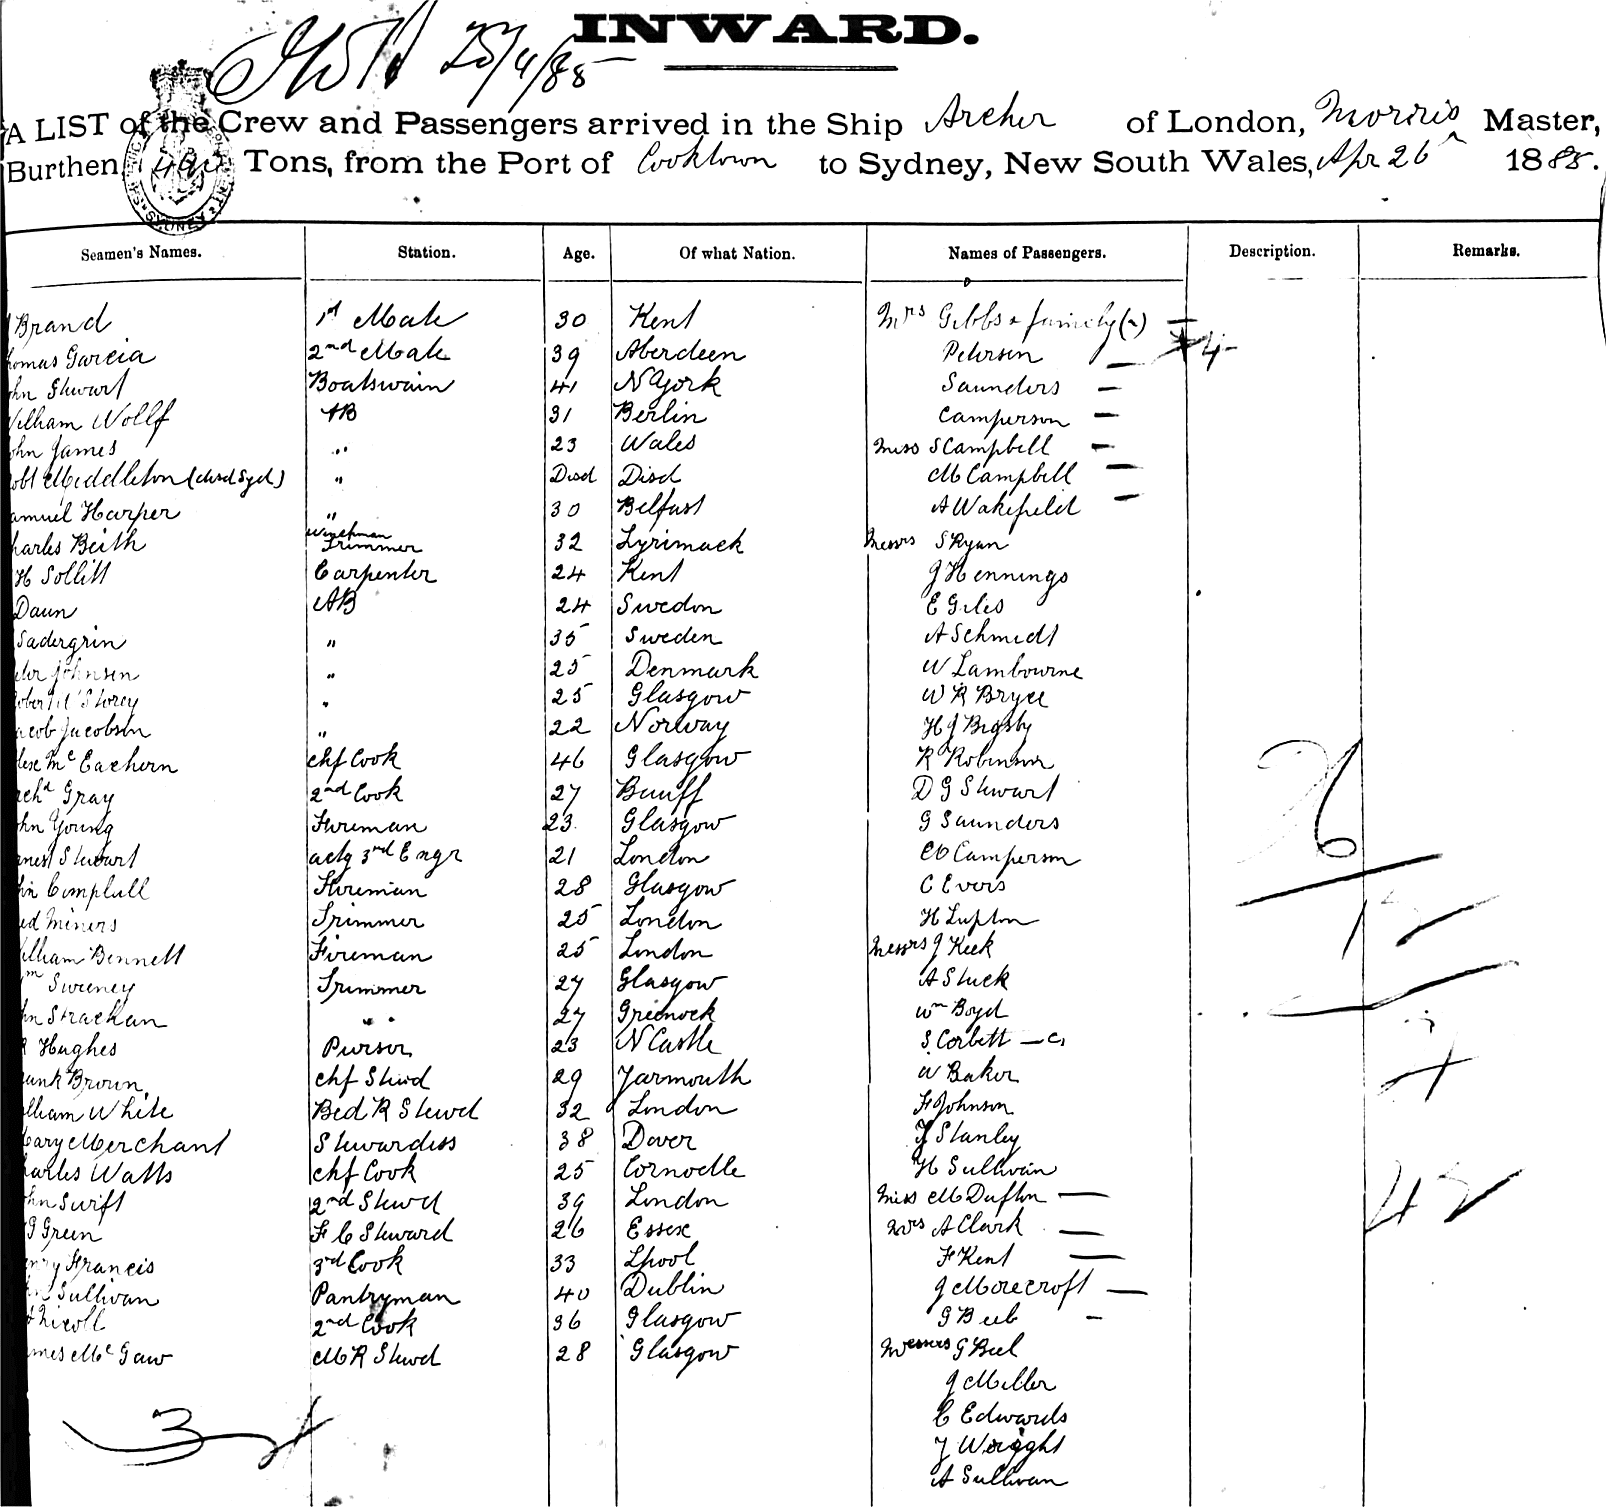 INWARD.
25/4/85
A LIST of the Crew and Passengers arrived in the Ship Archer of London, Morris Master,
Burthen Tons, from the Port of Cooktown to Sydney, New South Wales, Apr 26 1885.
Seamen's Names. Station. Age. Of what Nation. Names of Passengers. Description. Remarks.
Brand 1st Mate 30 Kent Mrs Gibbs & family
homas Garcia 2nd Mate 39 Aberdeen Petersen 4
ohn Stewart Boatswain 41 N York Saunders
William Wollf AB 31 Berlin Camperson
ohn James " 23 Wales Miss S Campbell
obt Middleton (disd Syd) " Disd Disd M Campbell
amuel Harper " 30 Belfast A Wakefield
harles Beith Winchman Trimmer 32 Messrs S Ryan
H Sollitt Carpenter 24 Kent J Hennings
Daun AB 24 Swedon E Giles
Sadergrin " 35 Sweden A Schmidt
eter Johnsen " 25 Denmark W Lambourne
obert Storey " 25 Glasgow W R Bryce
acob Jacobsen " 22 Norway H J Bigsby
Mc Eachern chf Cook 46 Glasgow R Robinson
rchd Gray 2nd Cook 27 Banff D G Stewart
ohn Young Fireman 23 Glasgow G Saunders
rnest Stewart actg 3rd Engr 21 London Camperson
Campbell Fireman 28 Glasgow C Evers
ed Miners Trimmer 25 London H Lupton
illiam Bennett Fireman 25 London Messrs J Keek
m Sweeney Trimmer 27 Glasgow A Stuck
hn Strachan " " 27 Greenock Wm Boyd
R Hughes Purser 23 N Castle S. Corbett
rank Brown chf Stwd 29 Yarmouth W Baker
illiam White Bed R Stewd 32 London F Johnson
Mary Merchant Stewardess 38 Dover J Stanley
harles Watts chf Cook 25 H Sullivan
ohn Swift 2nd Stewd 39 London Miss M Dufton 42
G Green F C Steward 26 Essex Mrs A Clark
enry Francis 3rd Cook 33 Lpool F Kent
Sullivan Pantryman 40 Dublin J Morecroft
Nicoll 2nd Cook 36 Glasgow G Beeb
ames Mc Gaw M R Stewd 28 Glasgow Messrs G Beel
J Miller
C Edwards
J Wright
A Sullivan